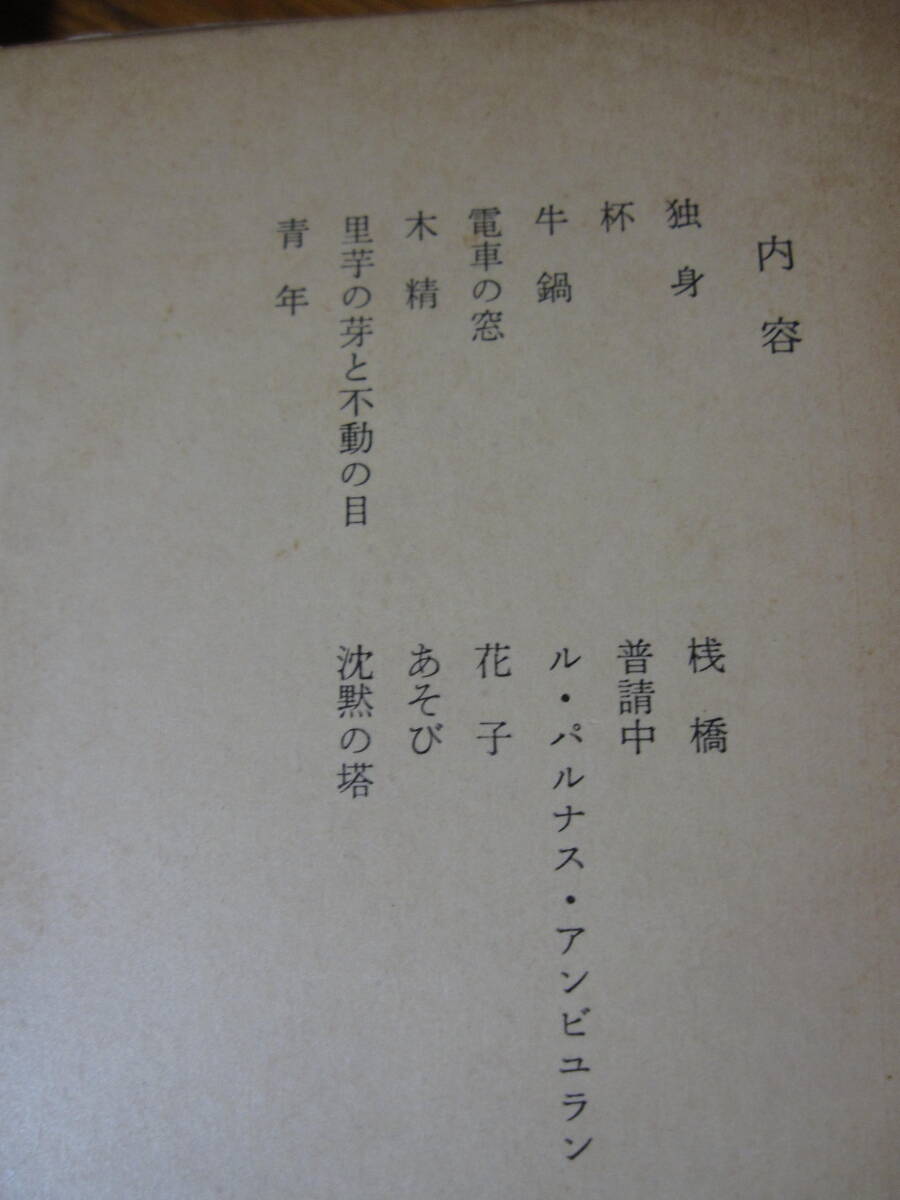 内容
独身
杯
牛鍋
電車の窓
木精
里芋の芽と不動の目
青年
桟橋
普請中
ル・パルナス・アンビユラン
花子
あそび
沈黙の塔